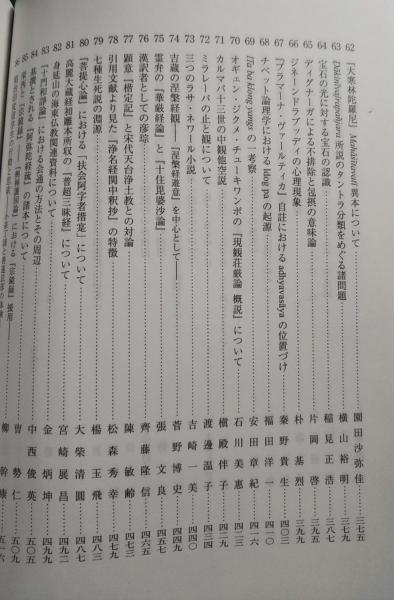 62 『大寒林陀羅尼』Mahāśītavatī 写本について……園田沙弥佳……三七五
63 Ḍākinīvajrapañjara 所説のタントラ分類をめぐる諸問題……横山裕明
64 宝石の光に対する宝石の認識……稲見正浩
65 ディグナーガによる不排除と包摂の意味論……片岡啓
66 ジネーンドラブッディの心理現象……朴基烈……三九九
67 『プラマーナ・ヴァールティカ』自註における adhyavasāya の位置づけ……秦野貴生……四〇三
68 チベット論理学における ldog pa の起源……福田洋一
69 lTa ba klong yangs の一考察……安田章紀……四一六
70 オギェン・ジクメ・チューキワンポの『現観荘厳論 概説』について……石川美惠
71 カルマパ十三世の中観他空説……槇殿伴子……四二九
72 ミラレーパの止と観について……渡邊温子……四三四
73 三つのラサ・ネワール小説……吉崎一美
74 吉蔵の涅槃経観 『涅槃経遊意』を中心として……菅野博史……四四〇
75 霊弁の『華厳経論』と『十住毘婆沙論』……張文良
76 漢訳者としての彦琮……齊藤隆信……四六五
77 顕意『楷定記』と宋代天台浄土教との対論……陳敏齢
78 引用文献より見た『浄名経関中釈抄』の特徴……松森秀幸……四七九
79 七種生死説の淵源……楊玉飛……四八三
80 『菩提心論』における「扶会阿字者揩寔」について……大柴清圓
81 高麗大蔵経初雕本所収の『普超三昧経』について……宮崎展昌……四九二
82 身延山の海東仏教関連資料について……金炳坤
83 『十門和諍論』における会通の方法とその周辺……中西俊英
84 基撰とされる『阿弥陀経疏』の諸本について……曺勢仁……五〇九
85 栄西と『宗鏡録』……における『宗鏡録』援用……柳幹康……五一六